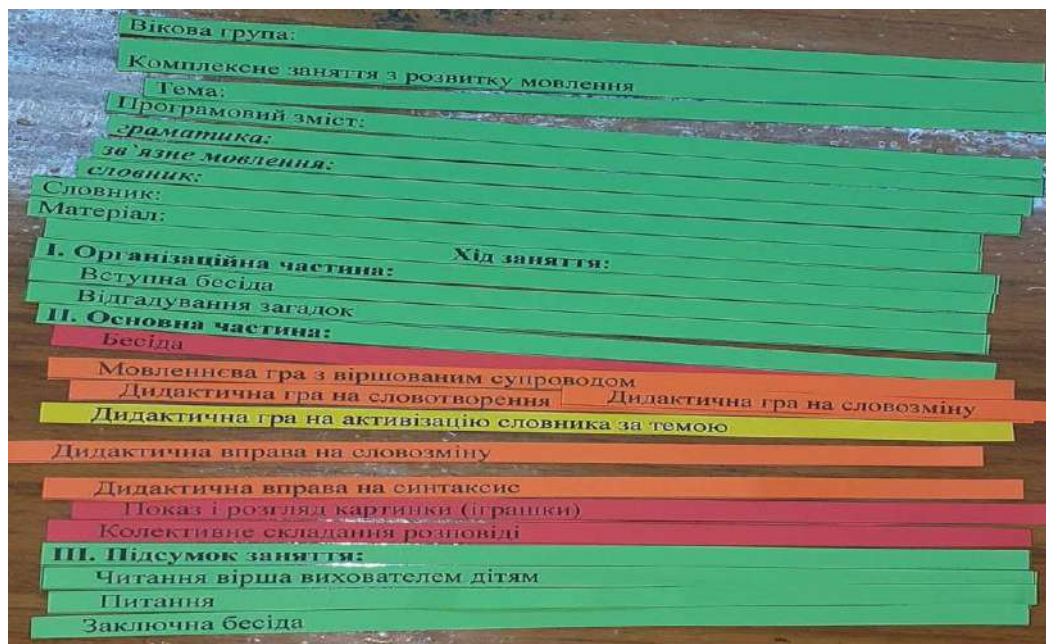 Вікова група:
Комплексне заняття з розвитку мовлення
Тема:
Програмовий зміст:
граматика:
зв`язне мовлення:
словник:
Словник:
Матеріал:
Хід заняття:
І. Організаційна частина:
Вступна бесіда
Відгадування загадок
ІІ. Основна частина:
Бесіда
Мовленнєва гра з віршованим супроводом
Дидактична гра на словотворення Дидактична гра на словозміну
Дидактична гра на активізацію словника за темою
Дидактична вправа на словозміну
Дидактична вправа на синтаксис
Показ і розгляд картинки (іграшки)
Колективне складання розповіді
ІІІ. Підсумок заняття:
Читання вірша вихователем дітям
Питання
Заключна бесіда